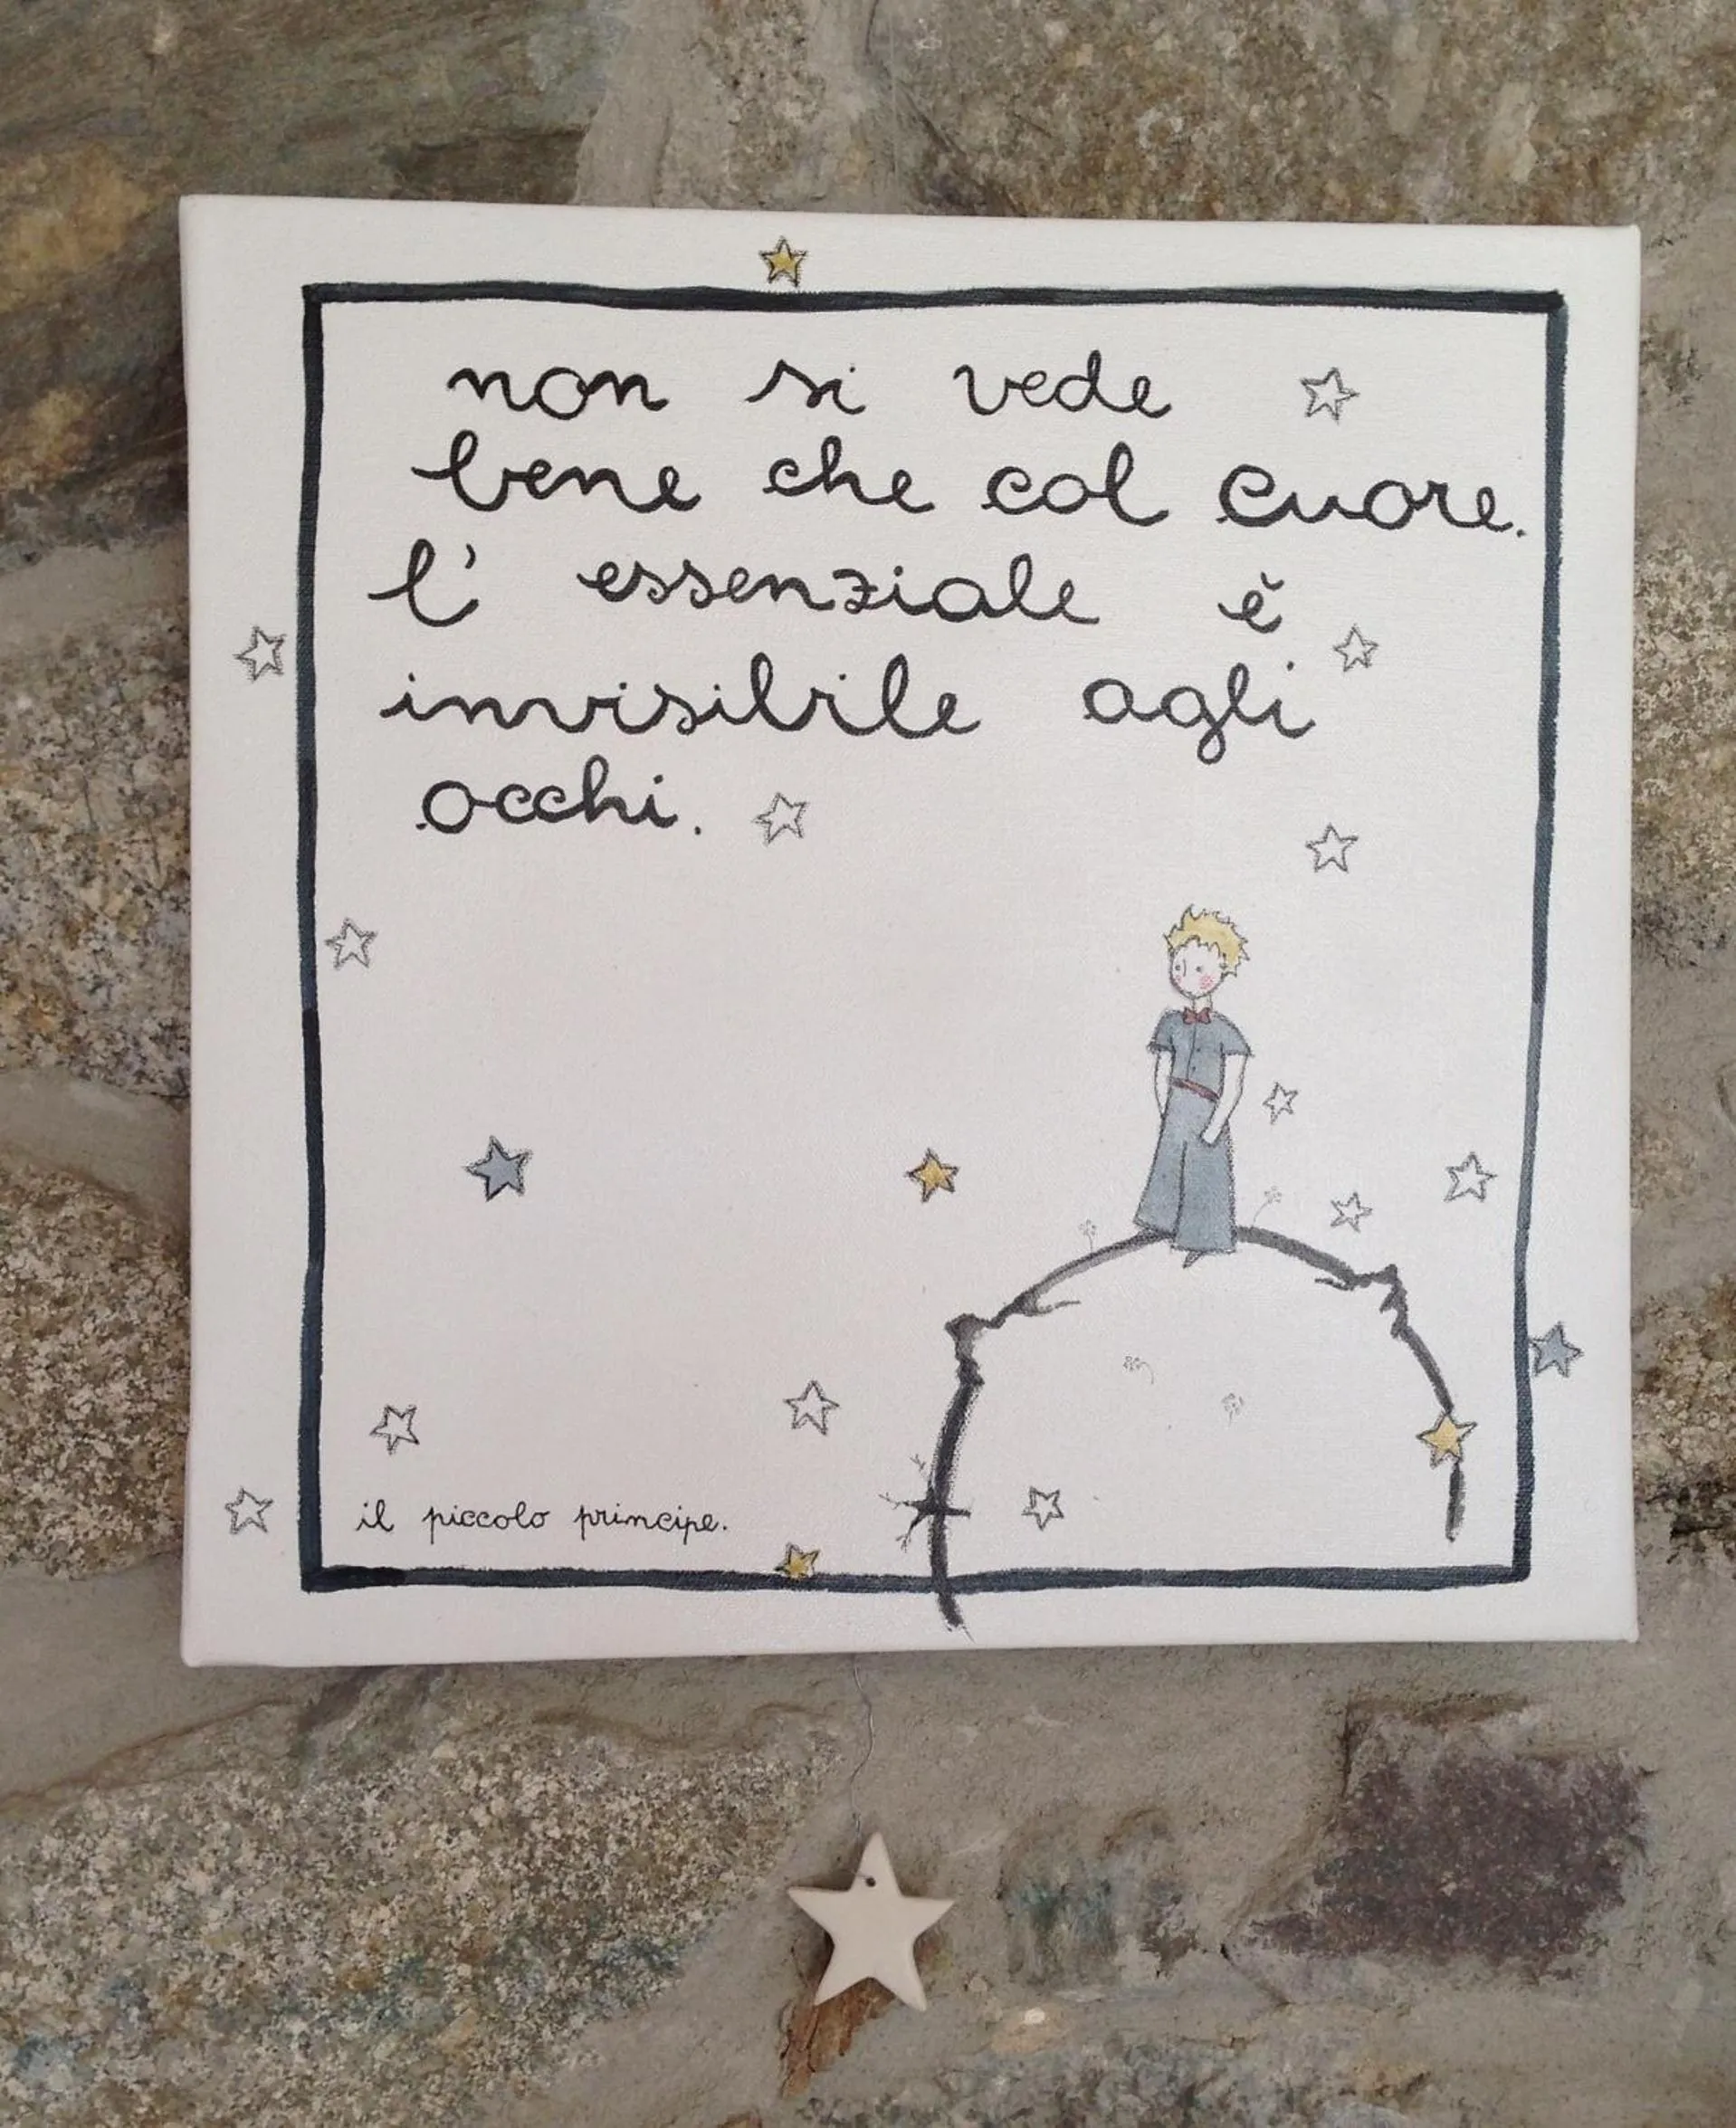 non si vede
bene che col cuore.
l' essenziale è
invisibile agli
occhi.
il piccolo principe.